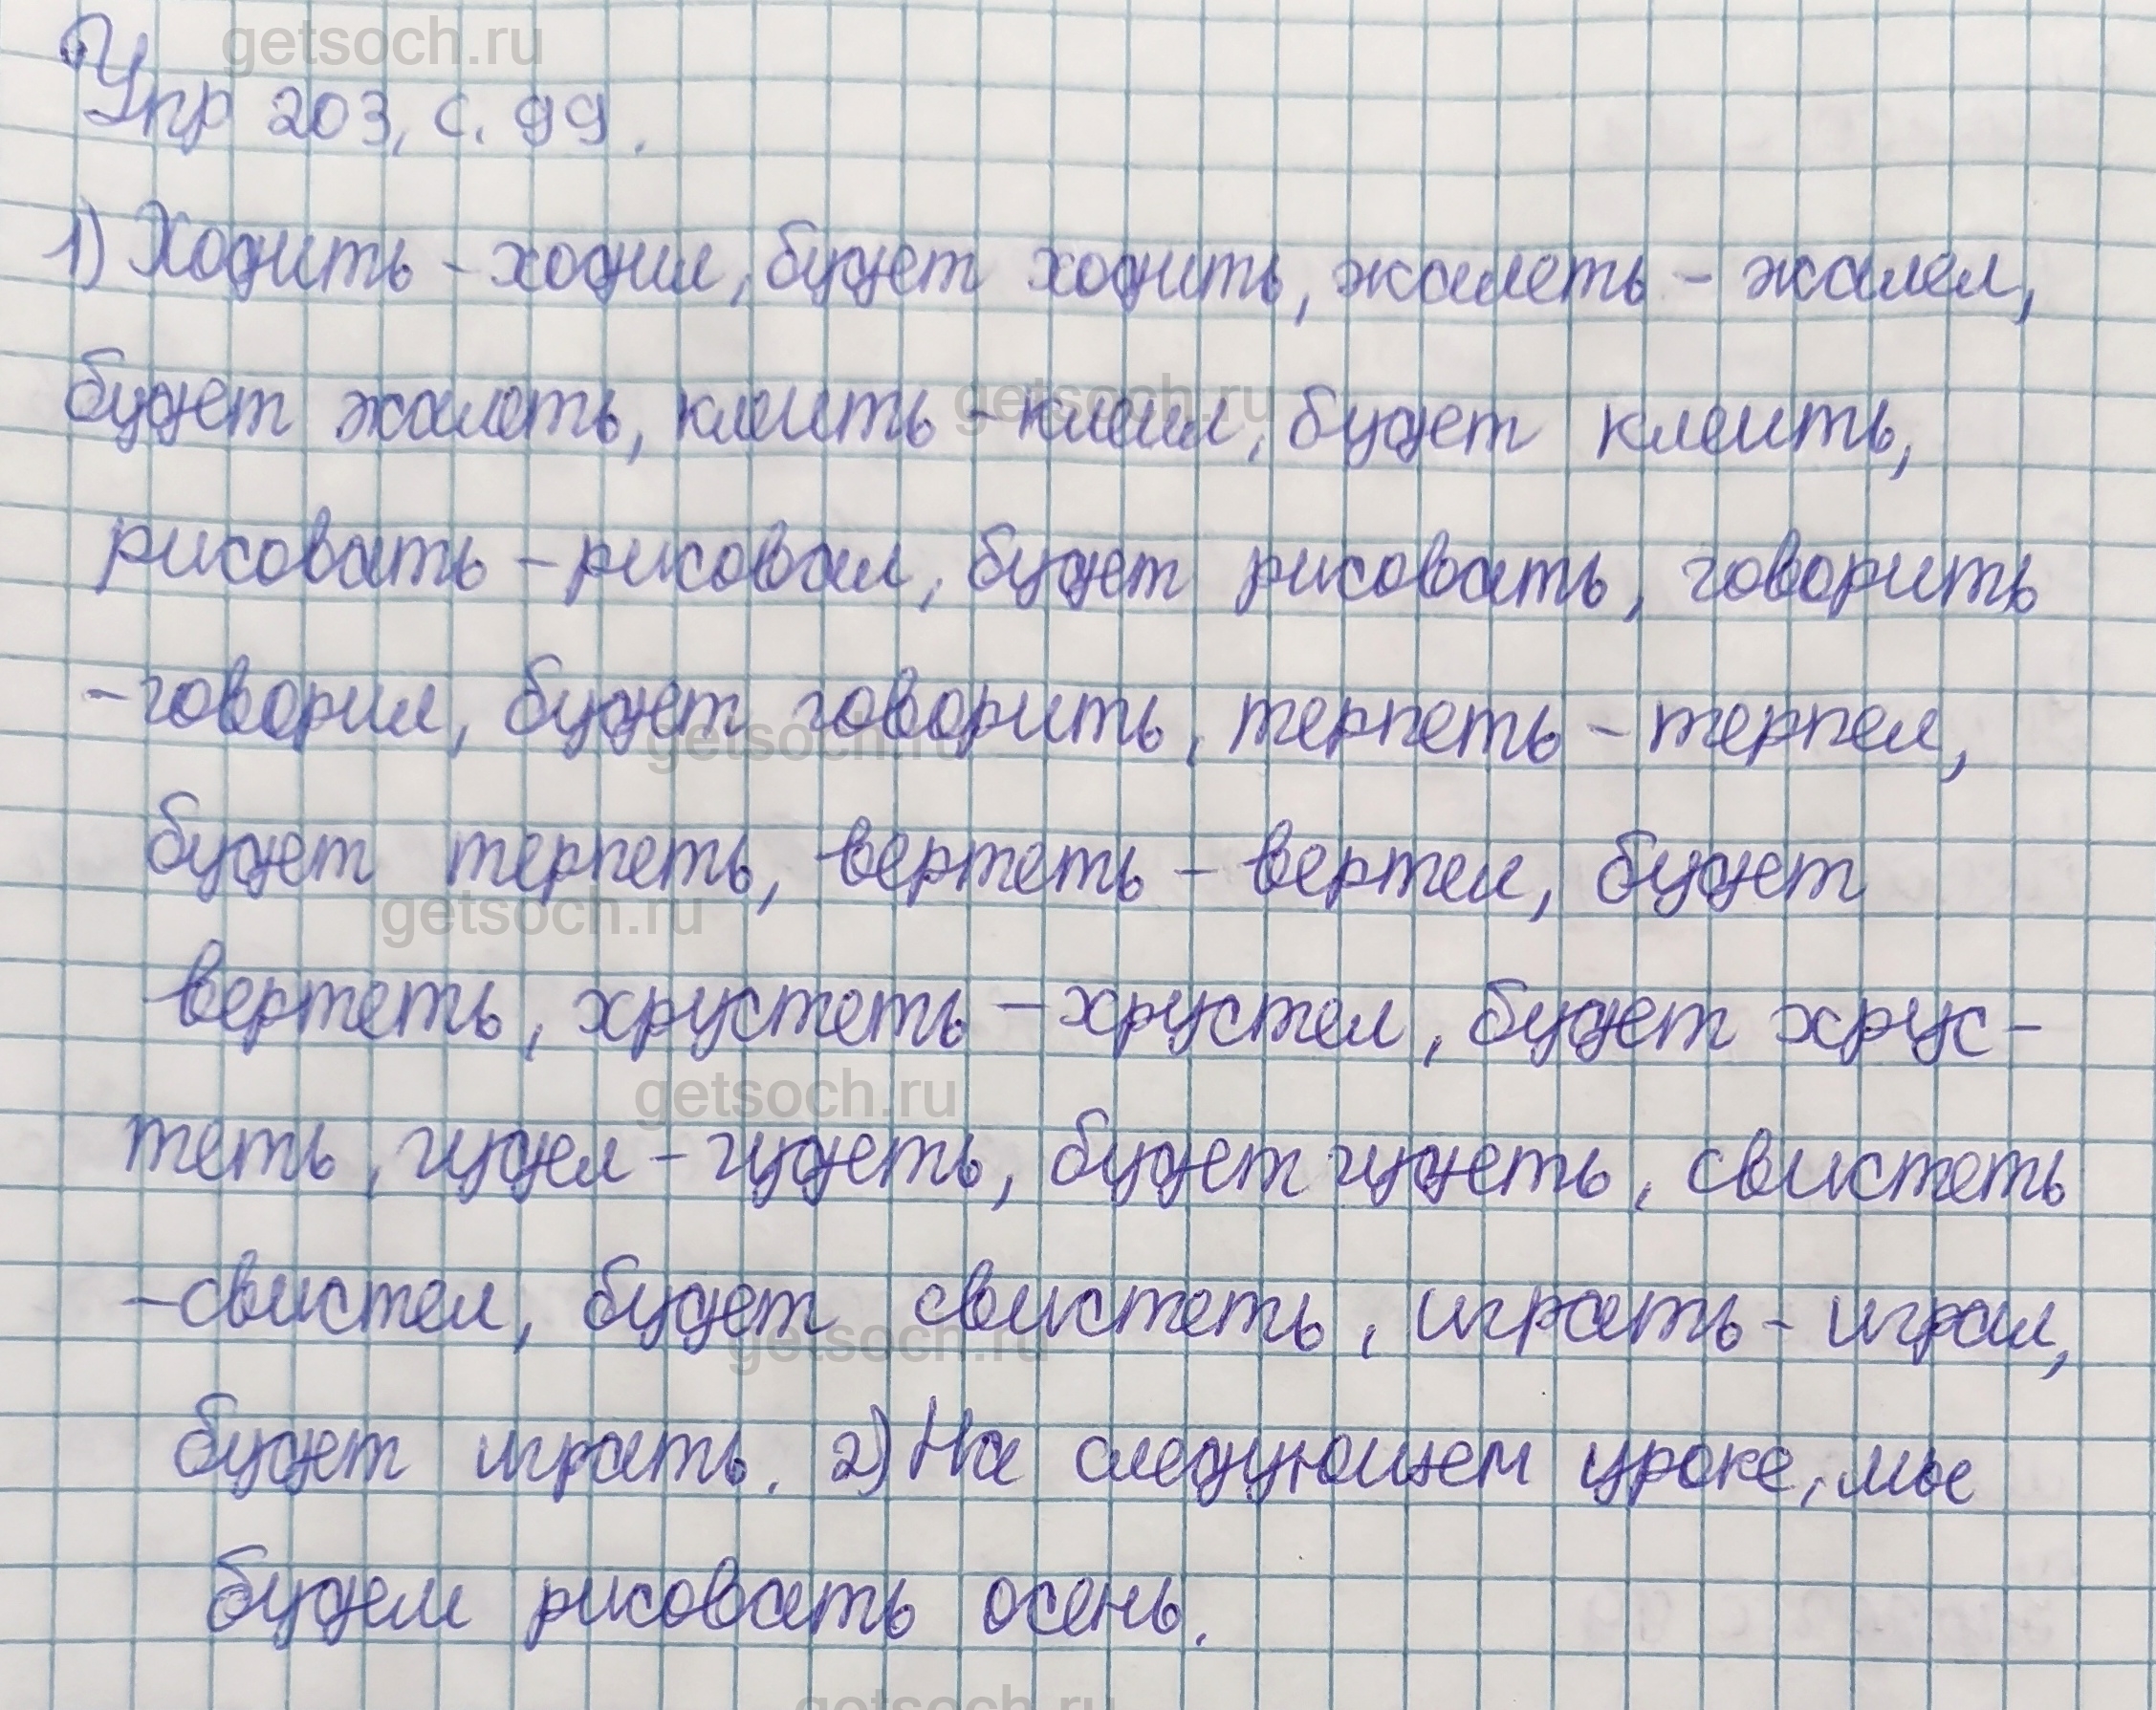 getsoch.ru
Упр 203, с. 99.
1) Ходить - ходил, будет ходить, жалеть - жалел,
getsoch.ru
будет жалеть, клеить - клеил, будет клеить,
рисовать - рисовал, будет рисовать, говорить
- говорил, будет говорить, терпеть - терпел,
getsoch.ru
будет терпеть, вертеть - вертел, будет
getsoch.ru
вертеть, хрустеть - хрустел, будет хрус-
getsoch.ru
теть, гудел - гудеть, будет гудеть, свистеть
- свистел, будет свистеть, играть - играл,
getsoch.ru
будет играть. 2) На следующем уроке, мы
будем рисовать осень.
getsoch.ru